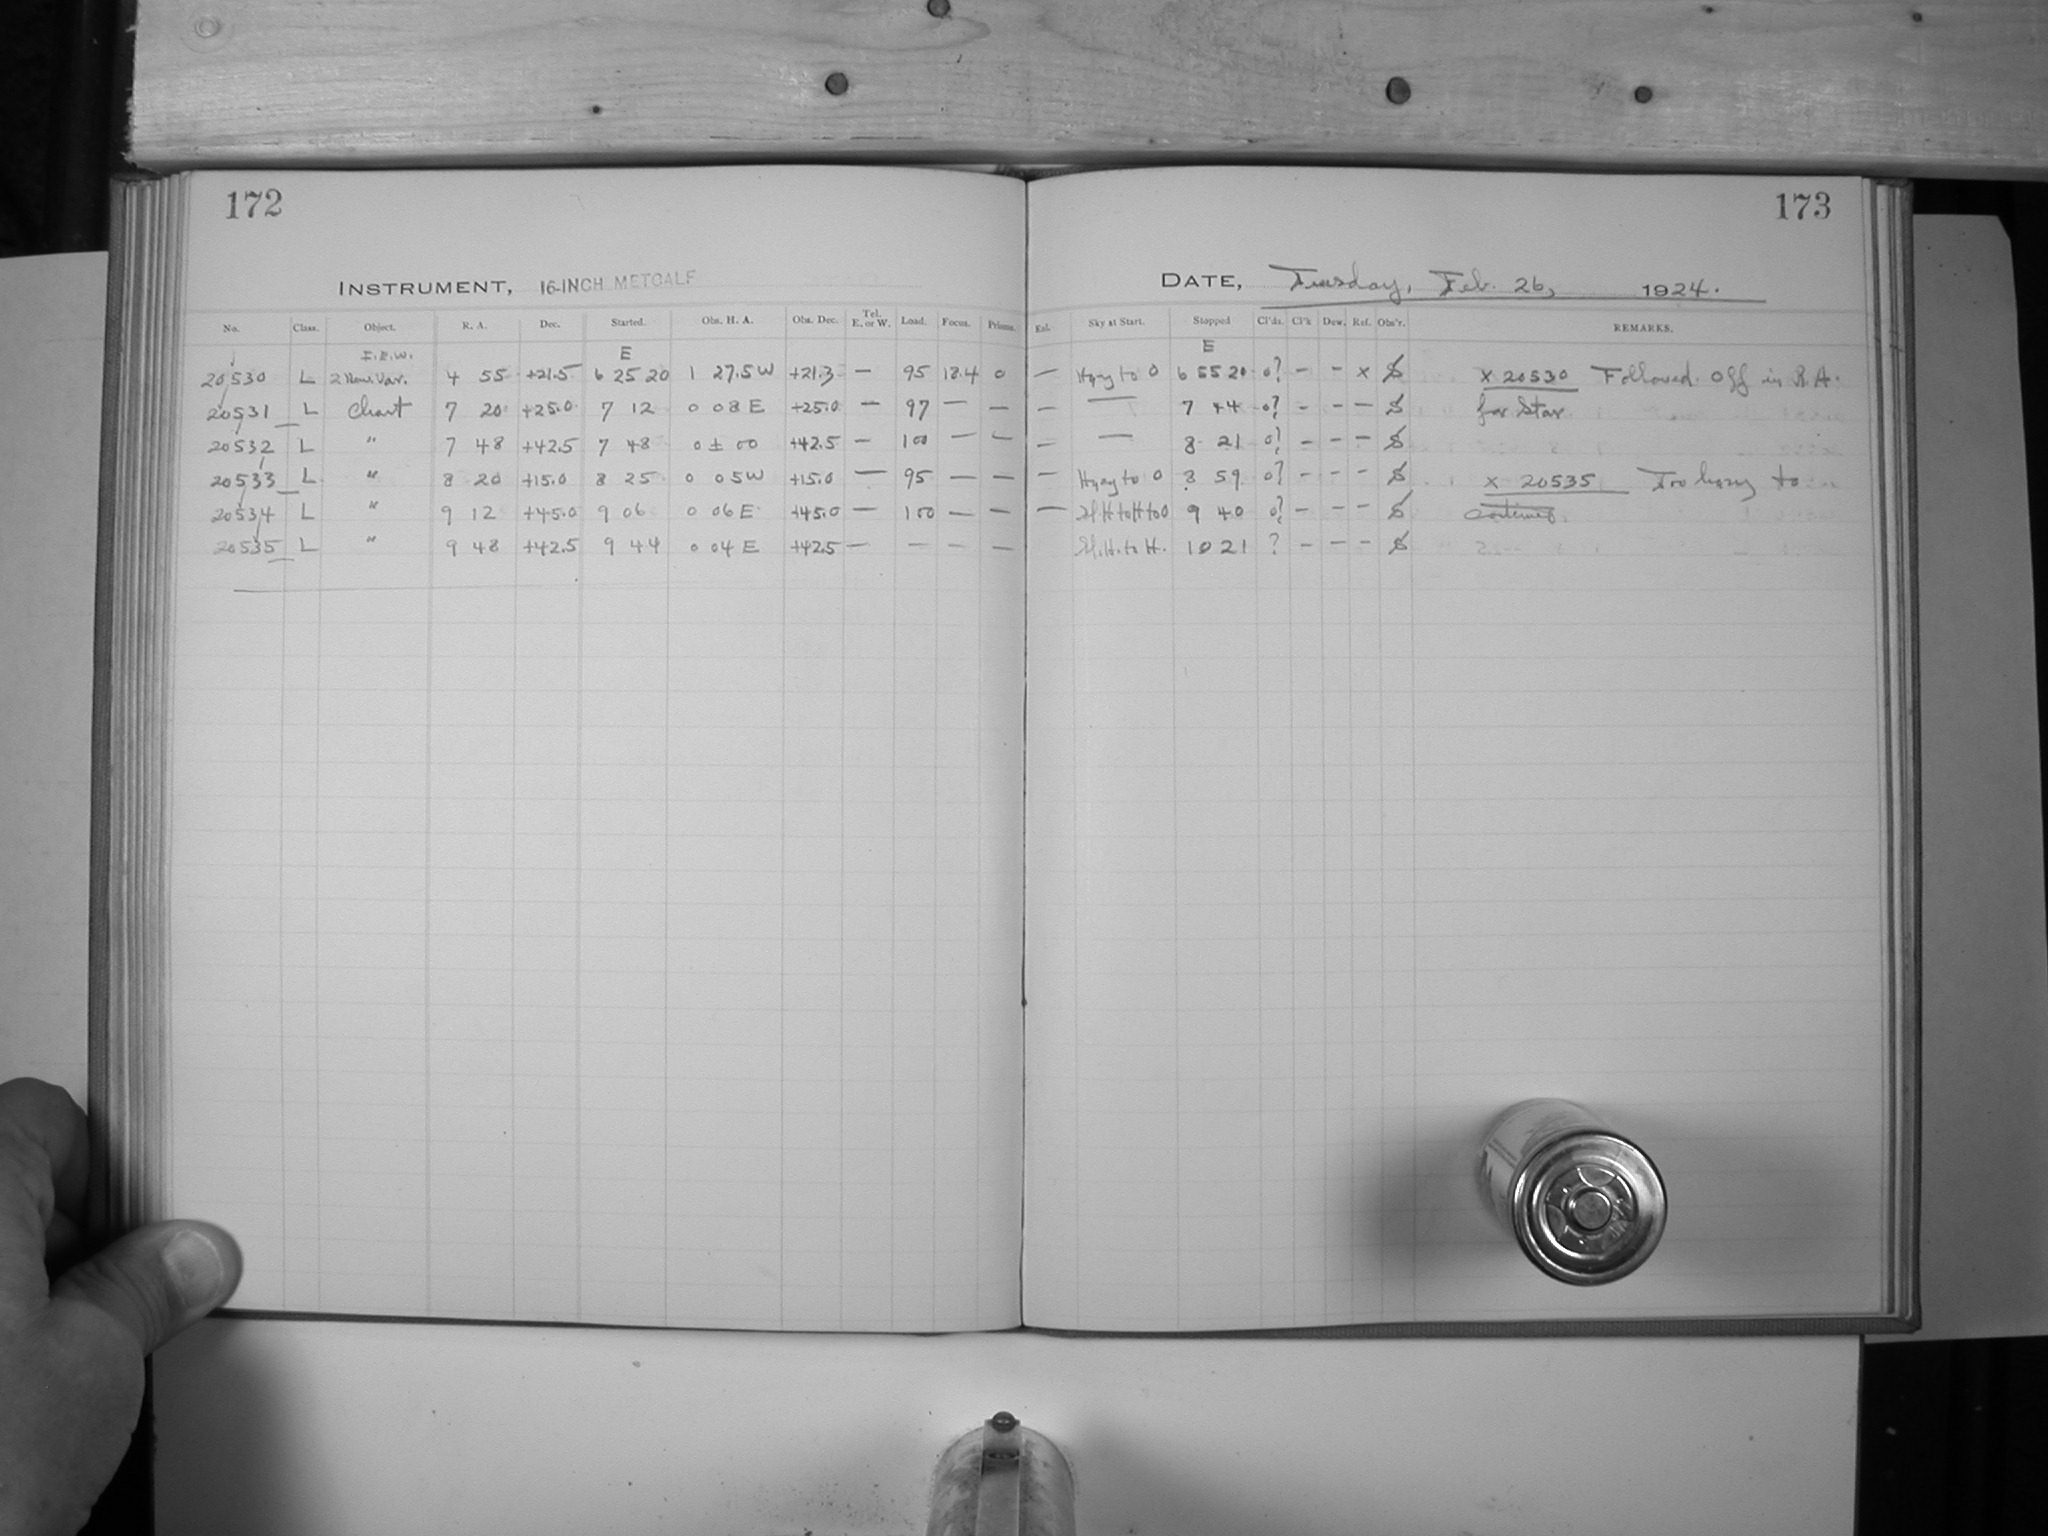 172
INSTRUMENT, 16-INCH METCALF
No. Class. Object. R. A. Dec. Started. Obs. H. A. Obs. Dec. Tel. E. or W. Load. Focus. Prisms.
I.E.W. E
20530 L 2 New. Var. 4 55 +21.5 6 25 20 1 27.5 W +21.3 — 95 18.4 0
20531 L Chart 7 20 +25.0 7 12 0 08 E +25.0 — 97 — —
20532 L " 7 48 +42.5 7 48 0 ± 00 +42.5 — 100 — —
20533 L " 8 20 +15.0 8 25 0 05 W +15.0 — 95 — —
20534 L " 9 12 +45.0 9 06 0 06 E +45.0 — 100 — —
20535 L " 9 48 +42.5 9 44 0 04 E +42.5 — — — —
173
DATE, Tuesday, Feb. 26, 1924.
Sky at Start. Stopped Cl'ds. Cl'k Dew. Ref. Obs'r. REMARKS.
E
— Hazy to 0 6 55 20 0? — — x S x 20530 Followed off in R.A.
— — 7 44 0? — — — S for Star
— — 8 21 0? — — — S
— Hazy to 0 8 59 0? — — — S x 20535 Too hazy to
— 9 40 0? — — — S continue.
10 21 ? — — — S